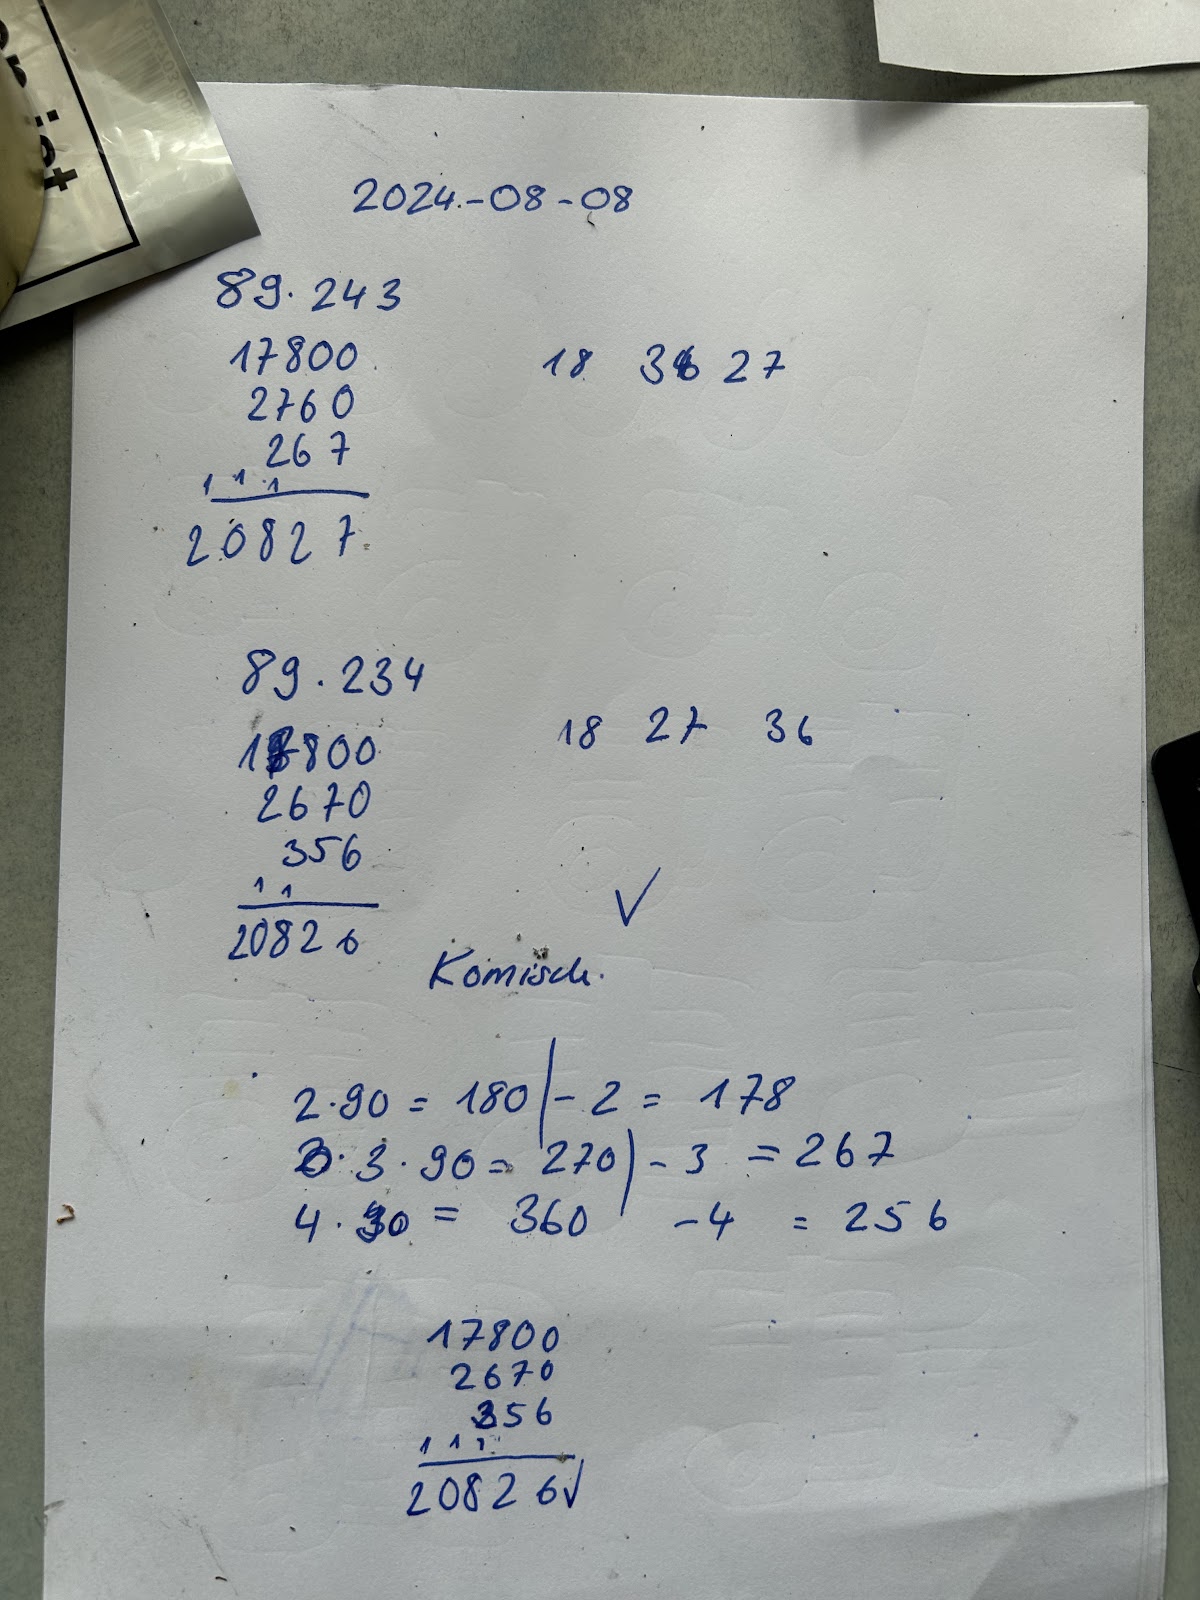 2024-08-08
89 · 243
17800 18 36 27
2760
267
1 1 1
20827
89 · 234
17800 18 27 36
2670
356
1 1
20826 ✓
Komisch.
2·90 = 180 | - 2 = 178
3 · 90 = 270 | - 3 = 267
4 · 90 = 360 - 4 = 256
17800
2670
356
1 1 1
20826 ✓